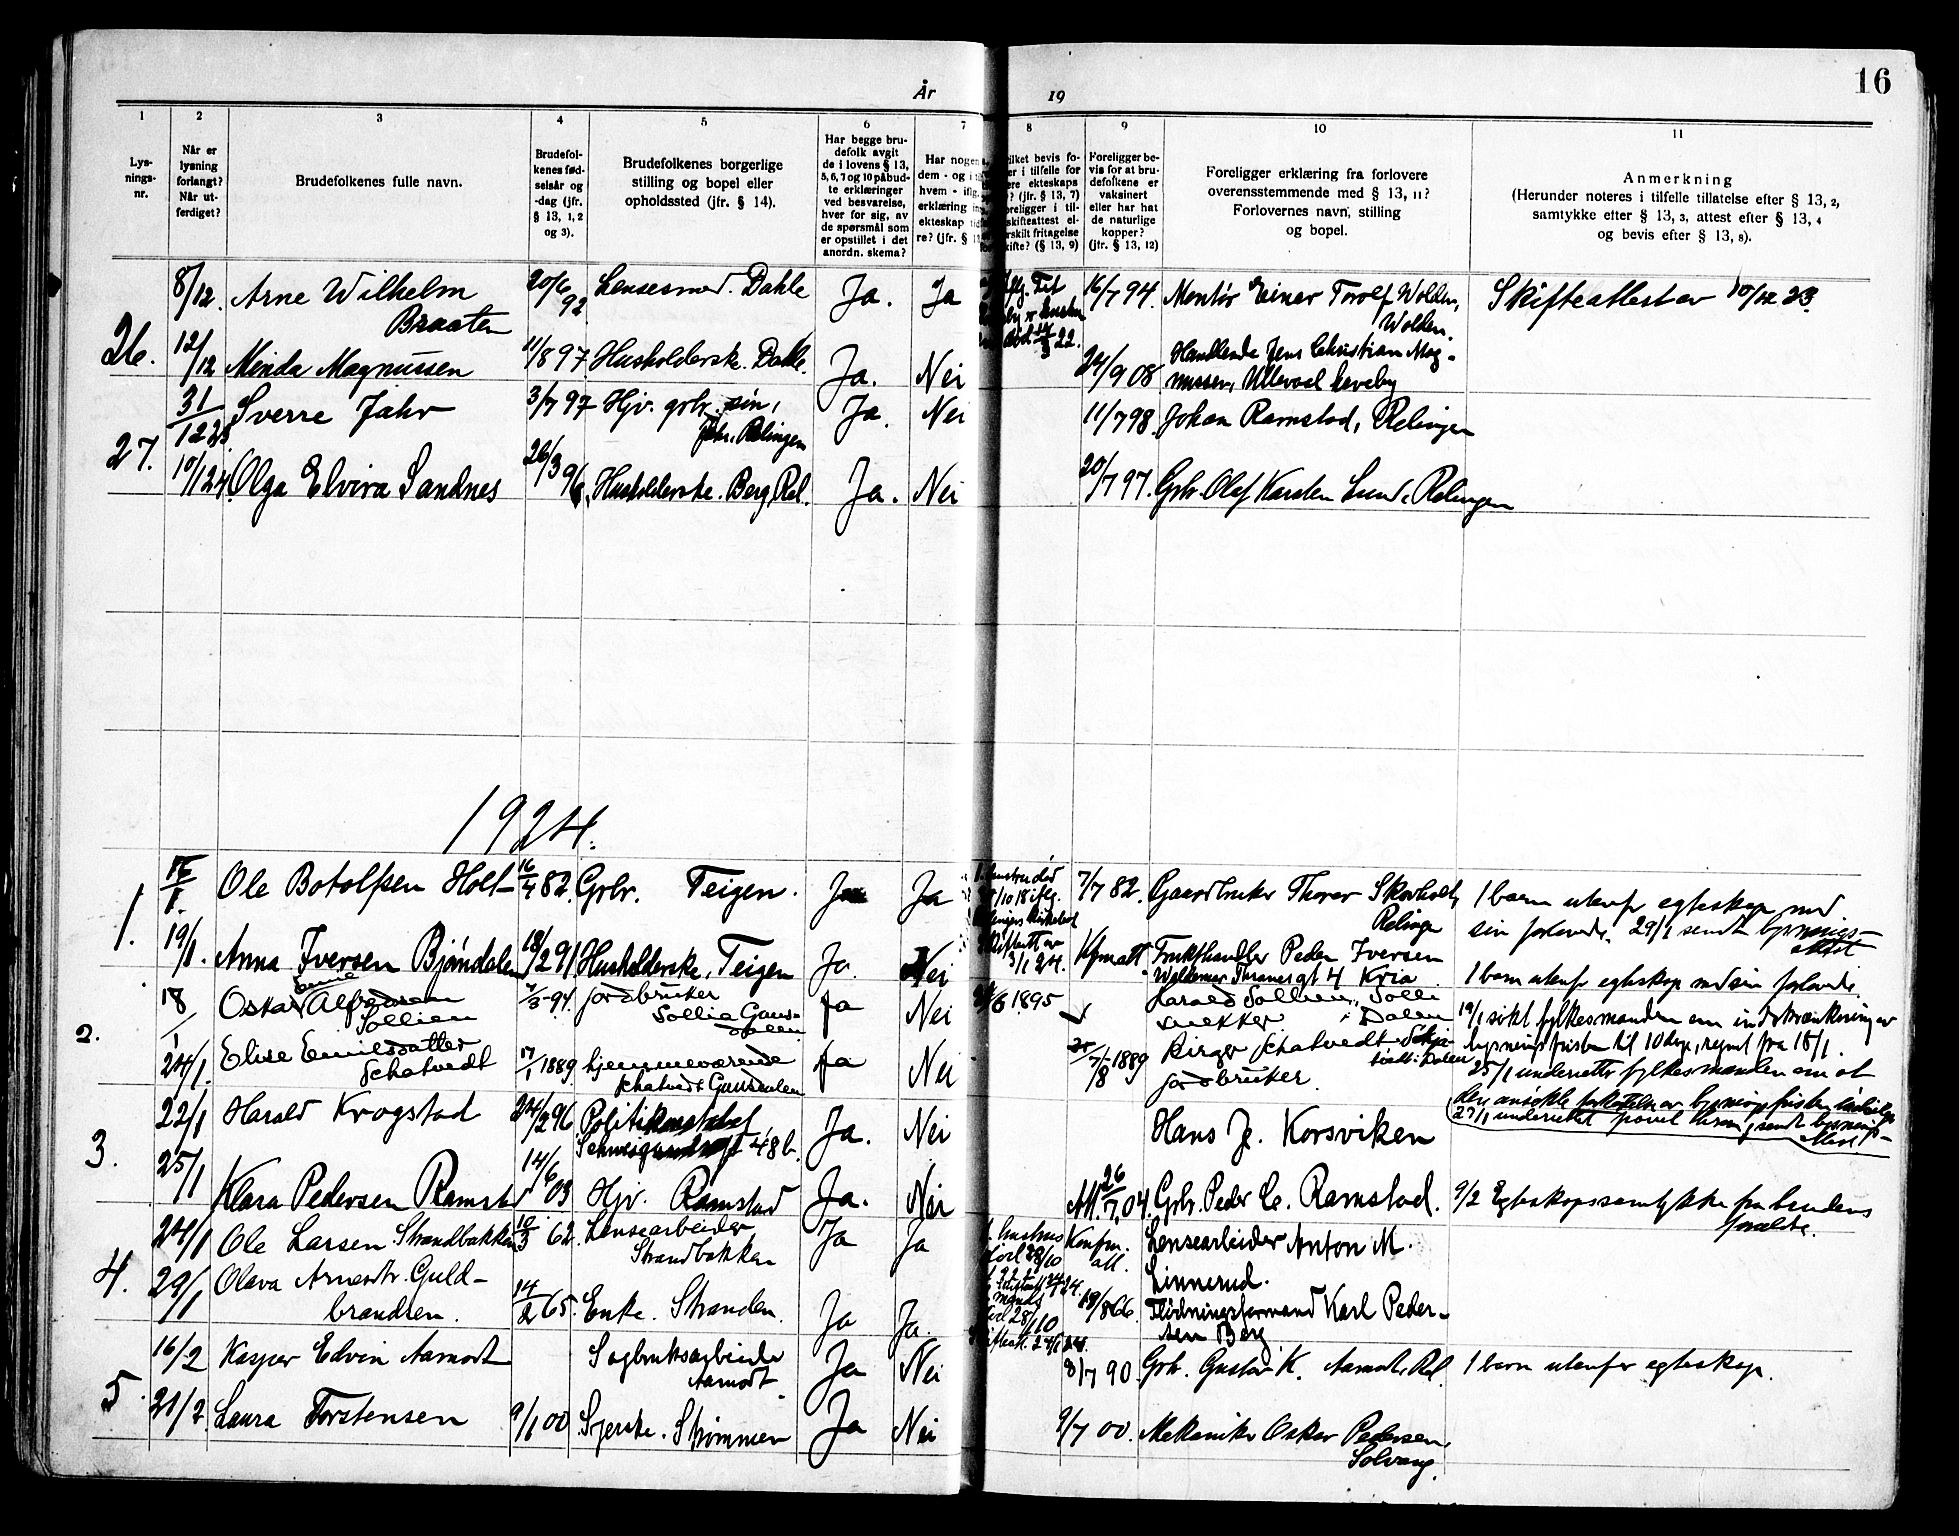 År 19
16
1 2 3 4 5 6 7 8 9 10 11
Lys-
nings-
nr.
Når er
lysning
forlangt?
Når ut-
ferdiget?
Brudefolkenes fulle navn.
Brudefol-
kenes fød-
selsår og
-dag (jfr.
§ 13, 1, 2
og 3).
Brudefolkenes borgerlige
stilling og bopel eller
opholdssted (jfr. § 14).
Har begge bru-
defolk avgit
de i lovens § 13,
5, 6, 7 og 10 påbud-
te erklæringer
ved besvarelse,
hver for sig, av
de spørsmål som
er opstillet i det
anordn. skema?
Har nogen
dem - og i
hvem - iflg.
erklæring
ekteskap
re? (jfr. §
ilket bevis fo-
er i tilfelle for
ere ekteskaps
? (jfr. § 13, 7)
oreligger i til-
skifteattest el-
rskilt fritagelse
kifte? (§ 13, 9)
Foreligger be-
vis for at bru-
defolkene er
vaksinert
eller har hat
de naturlige
kopper?
(jfr. § 13, 12)
Foreligger erklæring fra forlovere
overensstemmende med § 13, 11?
Forlovernes navn, stilling
og bopel.
Anmerkning
(Herunder noteres i tilfelle tillatelse efter § 13, 2,
samtykke efter § 13, 3, attest efter § 13, 4
og bevis efter § 13, 8).
26.
8/12. Arne Wilhelm
Braaten
20/6 92 Lensesmed. Dahle Ja. Ja
22.
16/7 94. Montør Einar Torolf Wolden,
Wolden.
Skifteattest av 10/12 23
12/12 Minda Magnussen 11/8 97 Husholderske. Dahle. Ja. Nei
24/9 08 Handlende Jens Christian Mag-
nussen, Ullevaal haveby
27.
31/12 23 Sverre Jahr 3/7 97 Hjv. grbr. søn,
Jahr. Relingen
Ja. Nei 11/7 98. Johan Ramstad, Relingen
10/1 24. Olga Elvira Sandnes 26/3 96. Husholderske. Berg, Rel. Ja. Nei 20/7 97. Grbr. Olaf Karsten Lund, Relingen
1924.
1.
15/1. Ole Botolfsen Holt 16/4 82. Grbr. Teigen. Ja Ja
7/7 82. Gaardbruker Thorar Skovholt,
Relingen
1 barn utenfor egteskap med
sin forlovede. 29/1 sendt lysnings-
attest
19/1. Anna Iversen Bjøndalen 18/2 91 Husholderske, Teigen Ja. Nei
3/1 24.
Kfmatt Frukthandler Peder Iversen
Waldemar Thranesgt 4 Kria
1 barn utenfor egteskap med sin forlovede.
2.
18/1 Oskar
Sollien
7/3-94. jordbruker
Sollia Gaus-
dalen
Ja Nei 6 1895
Harald Sollien, Solli
snekker i Dalen
19/1 søkt fylkesmanden om indskrænkning av
lysningsfristen til 10 dage, regnet fra 18/1.
24/1. Elise Emilsdatter
Schatvedt
17/1 1889 hjemmeværende
schatvedt Gausdalen
Ja Nei 7/8 1889 Birger schatvedt
jordbruker.
25/1 underretter fylkesmanden om at
den ansøkte
29/1 underrettet sendt lysnings-
attest
3.
22/1 Harald Krogstad 24/2 96 Politikonstabel
Schweigaardsgt 48 b.
Ja. Nei Hans J. Korsviken
25/1 Klara Pedersen Ramstad 14/6 03 Hjv. Ramstad Ja. Nei
Att. 26/7 04. Grbr. Peder C. Ramstad. 9/2 Egteskapssamtykke fra brudens
forældre.
4.
24/1 Ole Larsen Strandbakken 10/3 62. Lensearbeider
Strandbakken
Ja Ja
hustrus
Konfm.
att.
Lensearbeider Anton M.
Linnerud.
29/1 Olava Arnesdtr. Guld-
brandsen.
14/2 65. Enke. Stranden. Ja Ja.
mands
28/10
19/8 66. Flødningsformand Karl Peder-
sen Berg
5.
16/2 Kasper Edvin Aamodt Sagbruksarbeider
Aamodt.
Ja Nei 8/7 90. Grbr. Gustav K. Aamodt, Rel. 1 barn utenfor egteskap.
21/2. Laura Torstensen 9/1 00. Syerske. Strømmen Ja Nei 9/7 00. Mekaniker Oskar Pedersen,
Solvang.